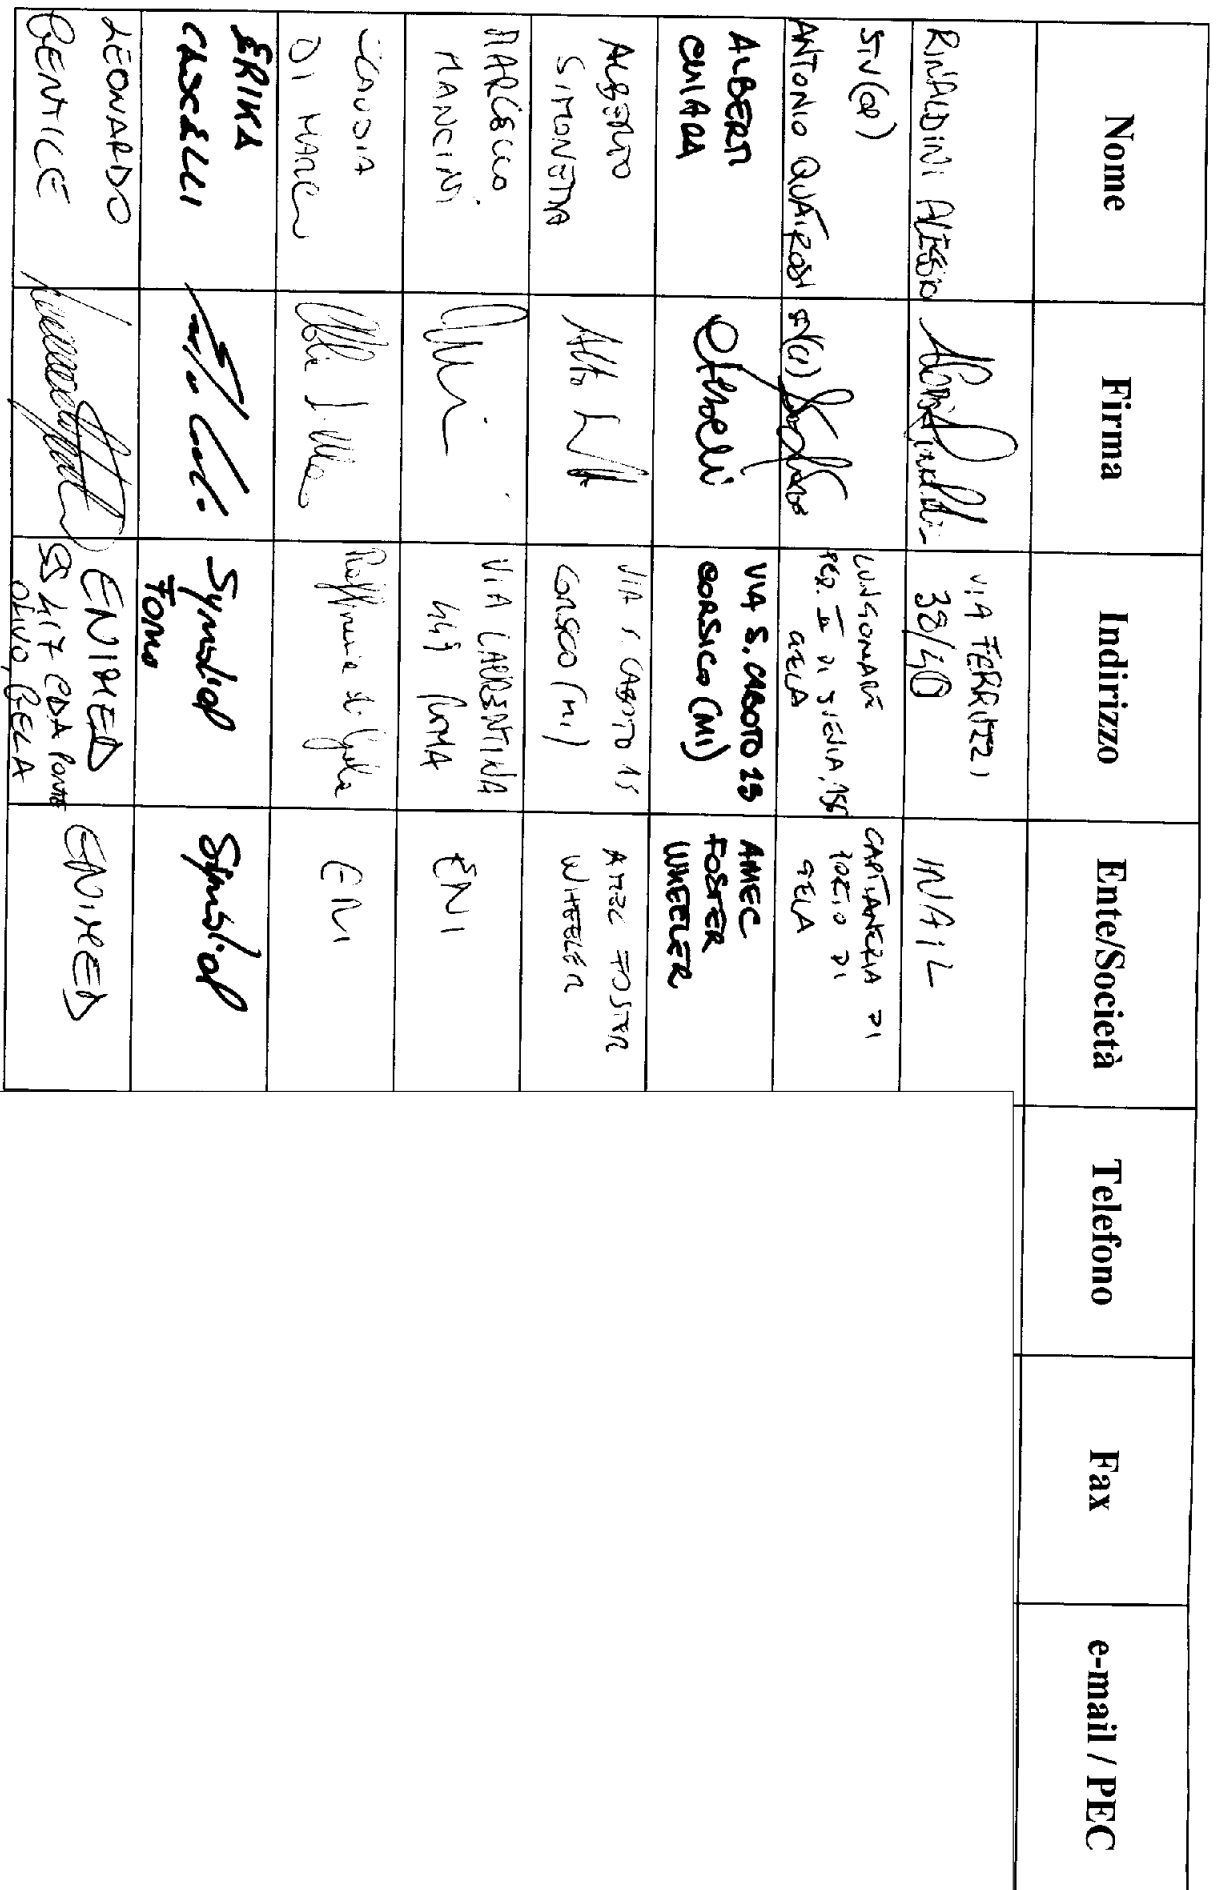 Nome Firma Indirizzo Ente/Società Telefono Fax e-mail / PEC
RINALDINI ALESSIO
VIA FERRUZZI
38/40
INAIL
STV(CP)
ANTONIO QUATROSI
STV(CP)
LUNGOMARE
FED. II DI SVEVIA, 156
GELA
CAPITANERIA DI
PORTO DI
GELA
ALBERTI
CHIARA
VIA S. CABOTO 15
CORSICO (MI)
AMEC
FOSTER
WHEELER
ALBERTO
SIMONETTA
VIA S. CABOTO 15
CORSICO (MI)
AMEC FOSTER
WHEELER
MARCELLO
MANCINI
VIA LAURENTINA
449 ROMA
ENI
CLAUDIA
DI MARCO
Raffineria di Gela
ENI
ERIKA
Syndial
Syndial
LEONARDO
GENTILE
ENIMED
SS 117 CDA PONTE
OLIVO, GELA
ENIMED